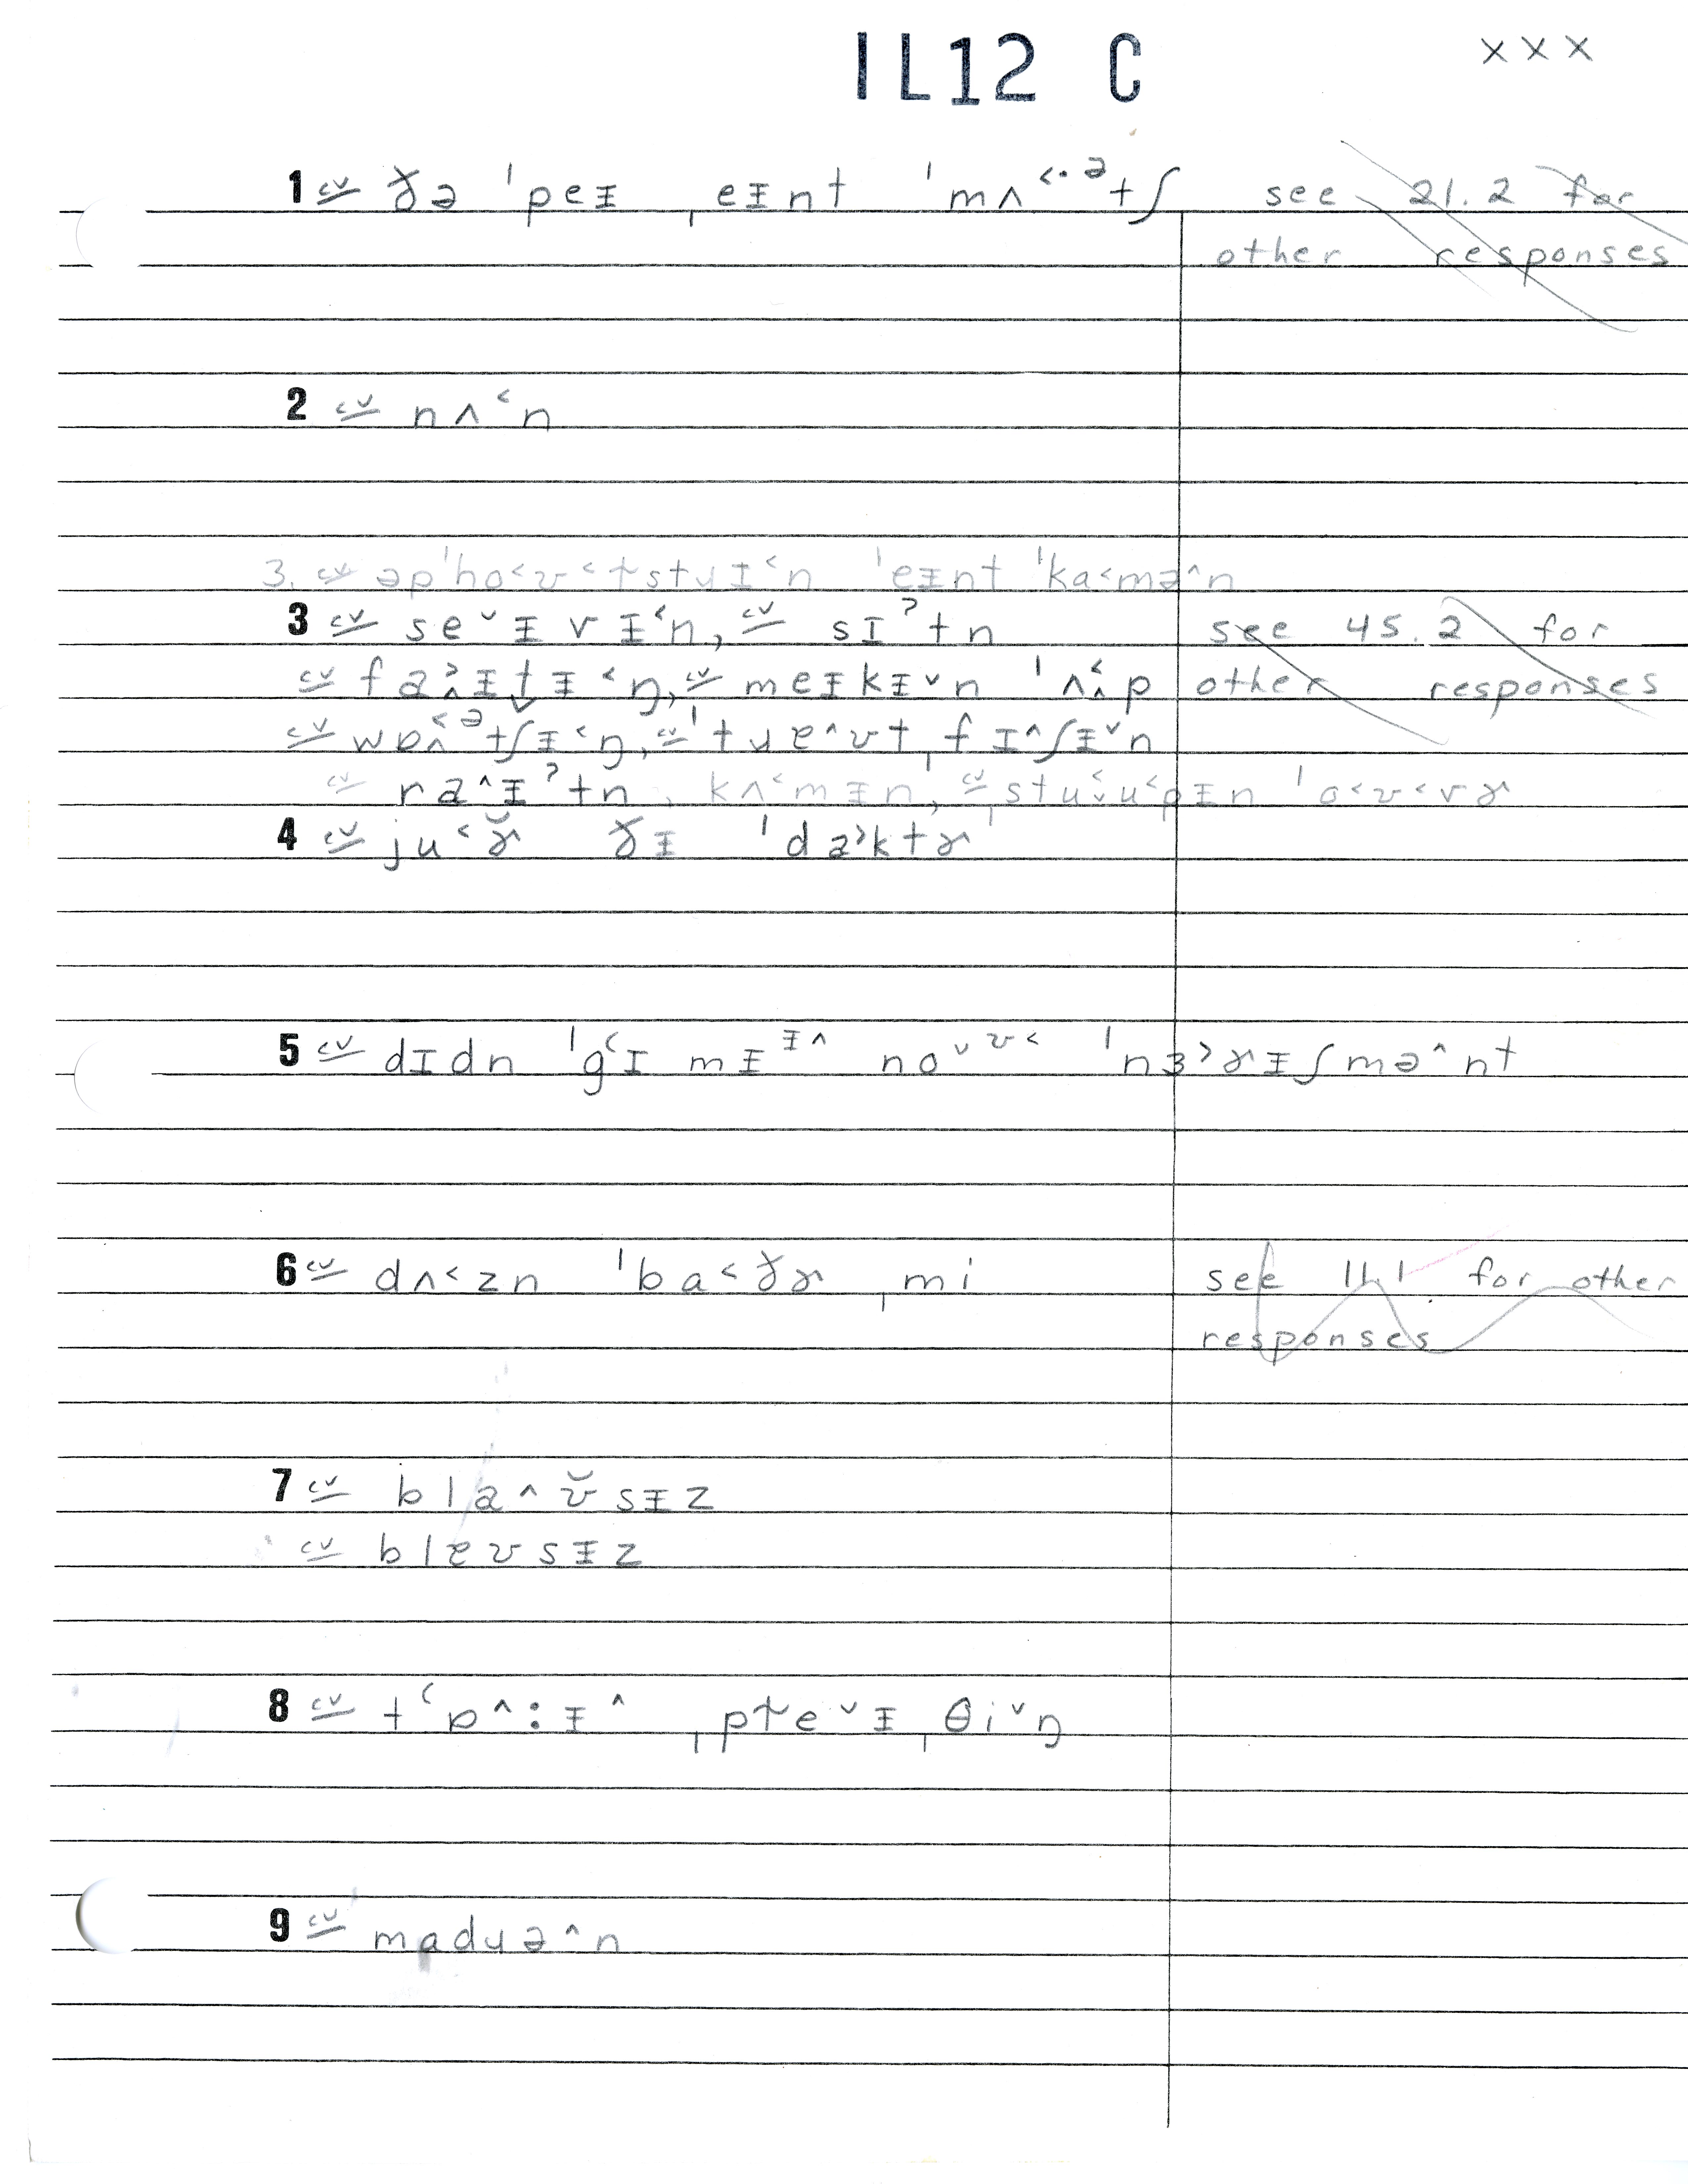 IL12 C
x x x
1 cv ɣə ˈpeɪ ˌeɪnt ˈmʌ˂·ᵊtʃ see 21.2 for
other responses
2 cv nʌ˂n
3. cv əpˈho˂ʊ˂tstɥɪ˂n ˈeɪnt ˈka˂mə^n
3 cv seˇɪvɪ˂n, cv sɪˀtn see 45.2 for
cv fa˃^ɪtɪ˂ŋ, cv meɪkɪˇn ˈʌ˂^p other responses
cv wɒ^˂ᵊtʃɪ˂ŋ, cv ˈtɥɐ^ʊtˌfɪ^ʃɪˇn
cv ra^ɪˀtn, kʌ˂mɪn, cv ˌstu˂ˇu˂pɪn ˈo˂ʊ˂vɚ
4 cv ju˂ɚ̆ ɣɪ ˈda˃ktɚ
5 cv dɪdn ˈgʻɪ mɪᶦ^ noˇᶷ˂ ˈnɜ˃ɚɪʃmə^nt
6 cv dʌ˂zn ˈba˂ɣɚ ˌmi see 11.1 for other
responses
7 cv bla^ʊ̆sɪz
cv blɐʊsɪz
8 cv tʻɒ^:ɪ^ ˌpteˇɪˌθiˇŋ
9 cv madɥə^n